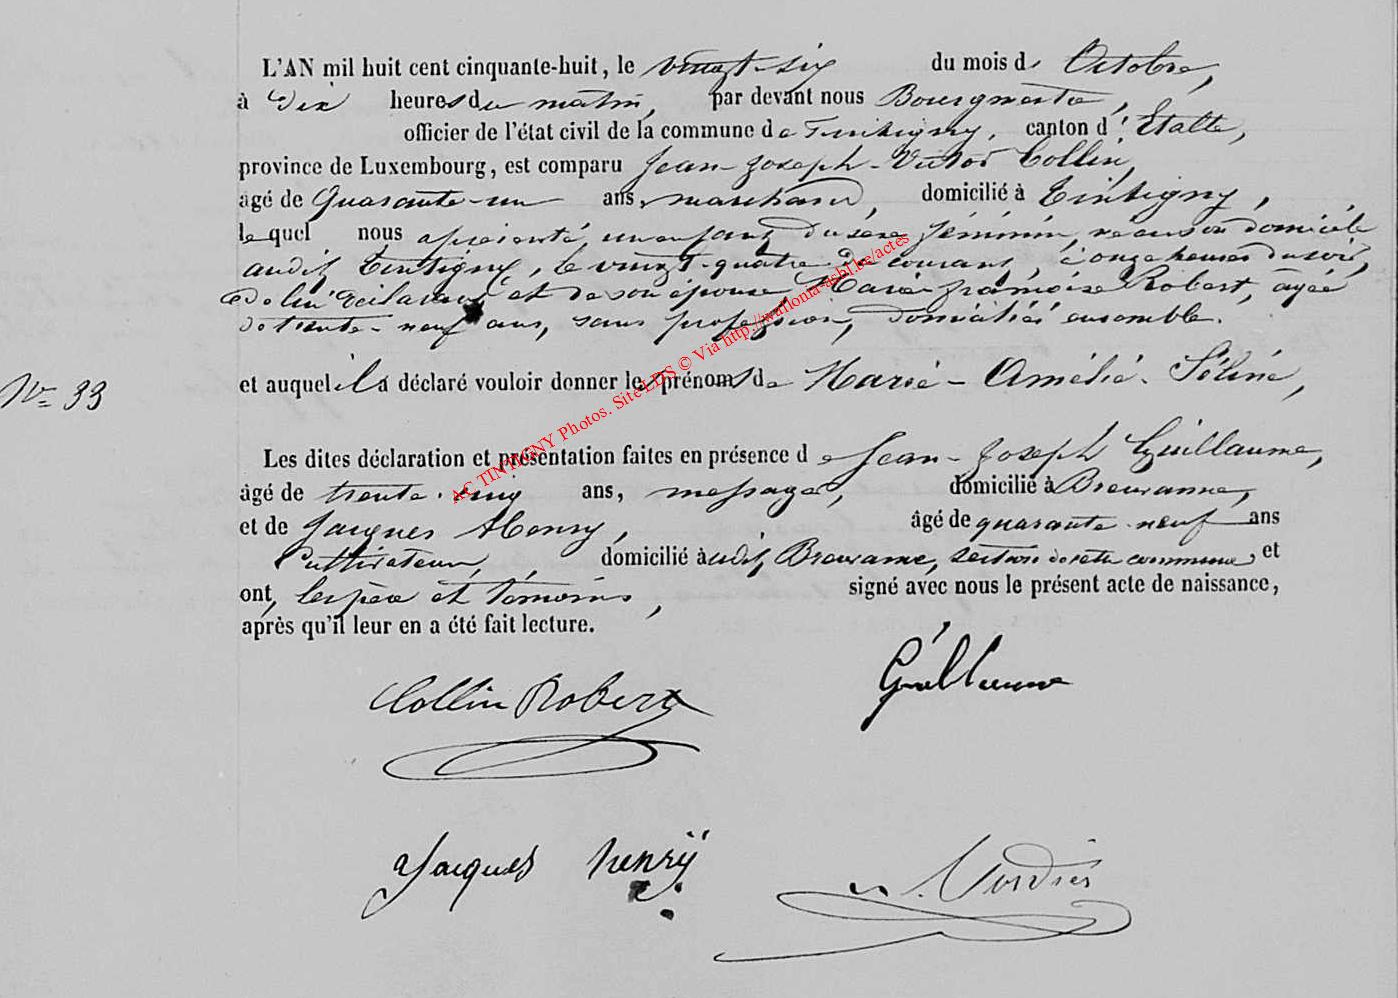 L'AN mil huit cent cinquante-huit, le vingt-six du mois d' Octobre,
à dix heures du matin, par devant nous Bourgmestre,
officier de l'état civil de la commune de Tintigny, canton d'Etalle,
province de Luxembourg, est comparu Jean-Joseph-Victor Collin,
âgé de Quarante-un ans, marchand, domicilié à Tintigny,
lequel nous a présenté, un enfant du sexe féminin, né en son domicile
audit Tintigny, le vingt-quatre du courant, à onze heures du soir,
de lui déclarant et de son épouse, Marie françoise Robert, agée
de trente-neuf ans, sans profession, domiciliés ensemble.
et auquel il a déclaré vouloir donner les prénoms de Marie-Amélie-Séline,
N° 33
Les dites déclaration et présentation faites en présence de Jean-Joseph Guillaume,
âgé de trente-cinq ans, messager, domicilié à Breuvanne,
et de Jacques Henry, âgé de quarante-neuf ans
Cultivateur, domicilié audit Breuvanne, section de cette commune, et
ont, les père et témoins, signé avec nous le présent acte de naissance,
après qu'il leur en a été fait lecture.
Collin Robert Guillaume
Jacques henrÿ
AC TINTIGNY Photos. Site LDS © Via http://wallonia-asbl.be/actes